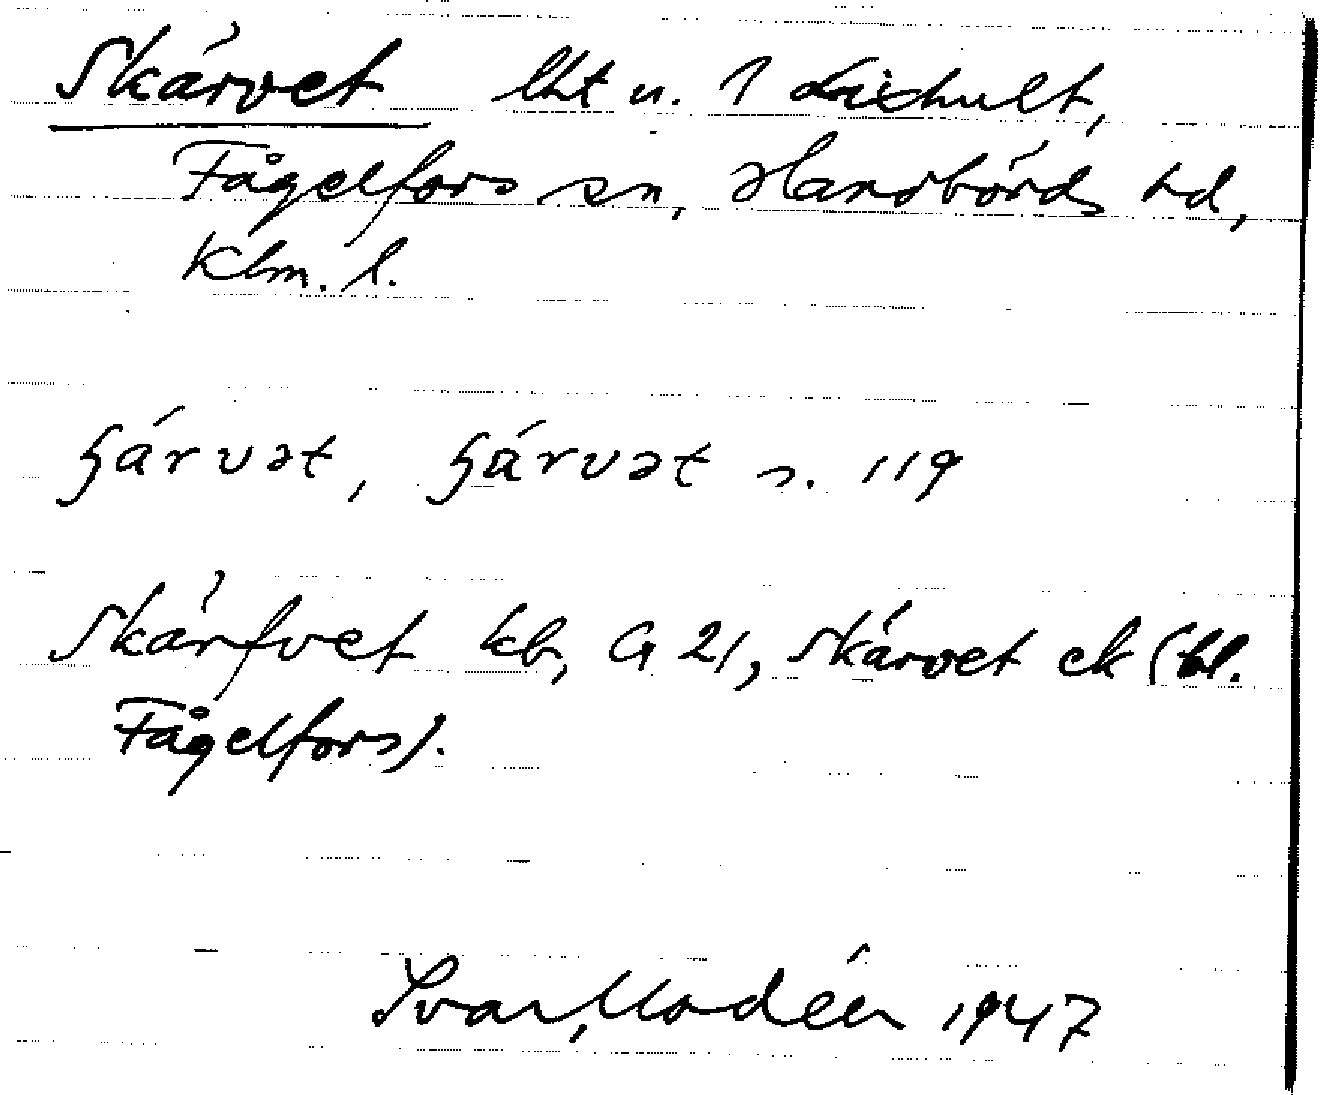 Skärvet lht u. 1 Lixhult,
Fågelfors sn, Handbörds hd,
Klm. l.
ʃárvət, ʃárvət s. 119
Skärfvet kb, G 21, Skärvet ek (bl.
Fågelfors).
Ivar Modéer 1947